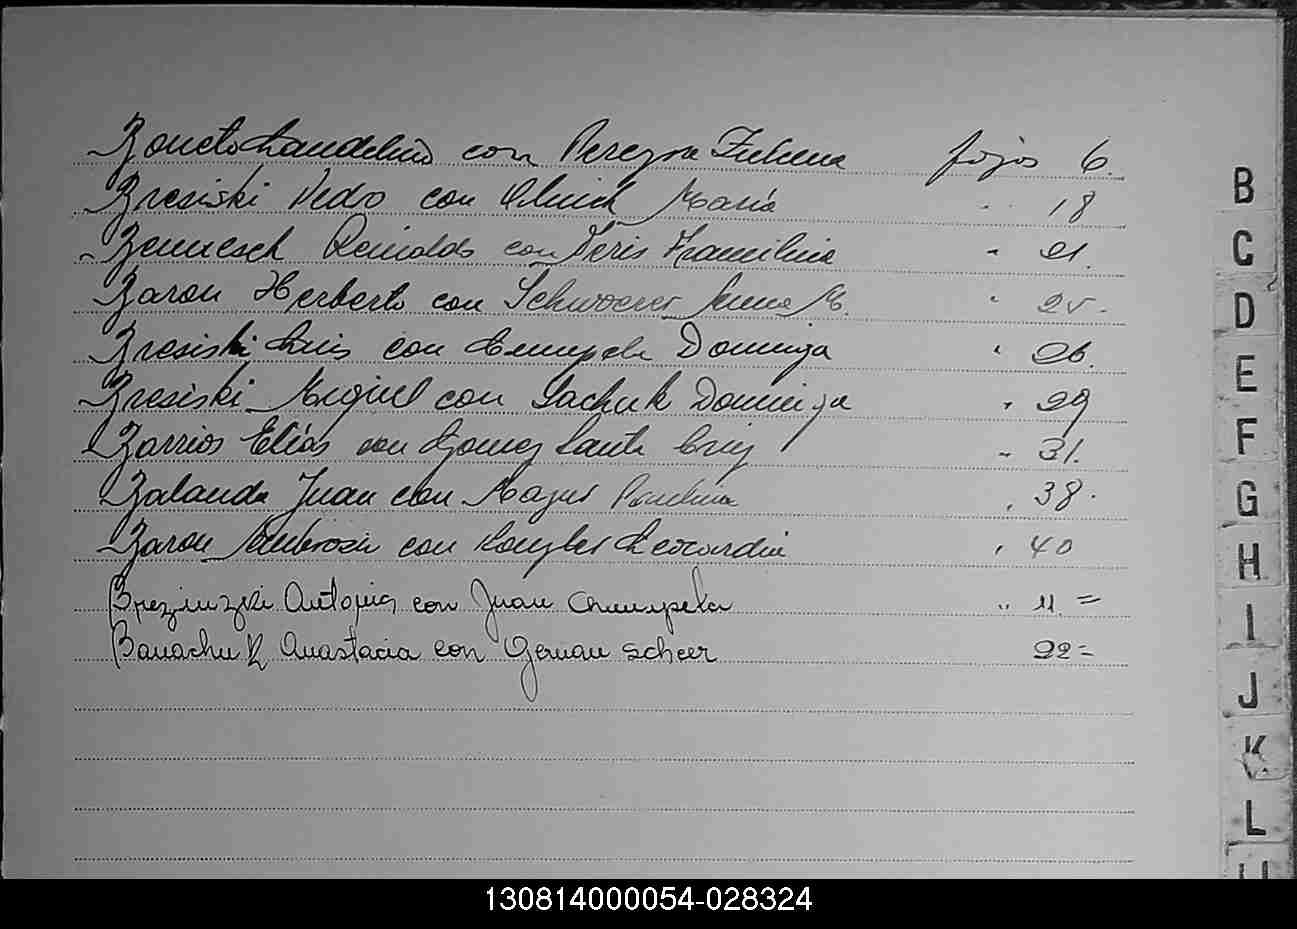 Boneto Laudelino con Pereyra Zulema fojas 6.
Bresiski Pedro con Ulrich Maria " 18
Bennesch Reinaldo con Peris Framilina " 21.
Baron Herberto con Schwoerer Anna M. " 25.
Bresiski Luis con Chempela Dominga " 26.
Bresiski Miguel con Sachuk Dominga " 29
Barrios Elias con Gomez Santa Cruz " 31.
Balanda Juan con Mazur Paulina " 38.
Baron Ambrosio con Gonzales Leocardia " 40
Brezinzki Antonia con Juan Chempela " 11 =
Banachuk Anastacia con German Scheer 22 =
B
C
D
E
F
G
H
I
J
K
L
130814000054-028324